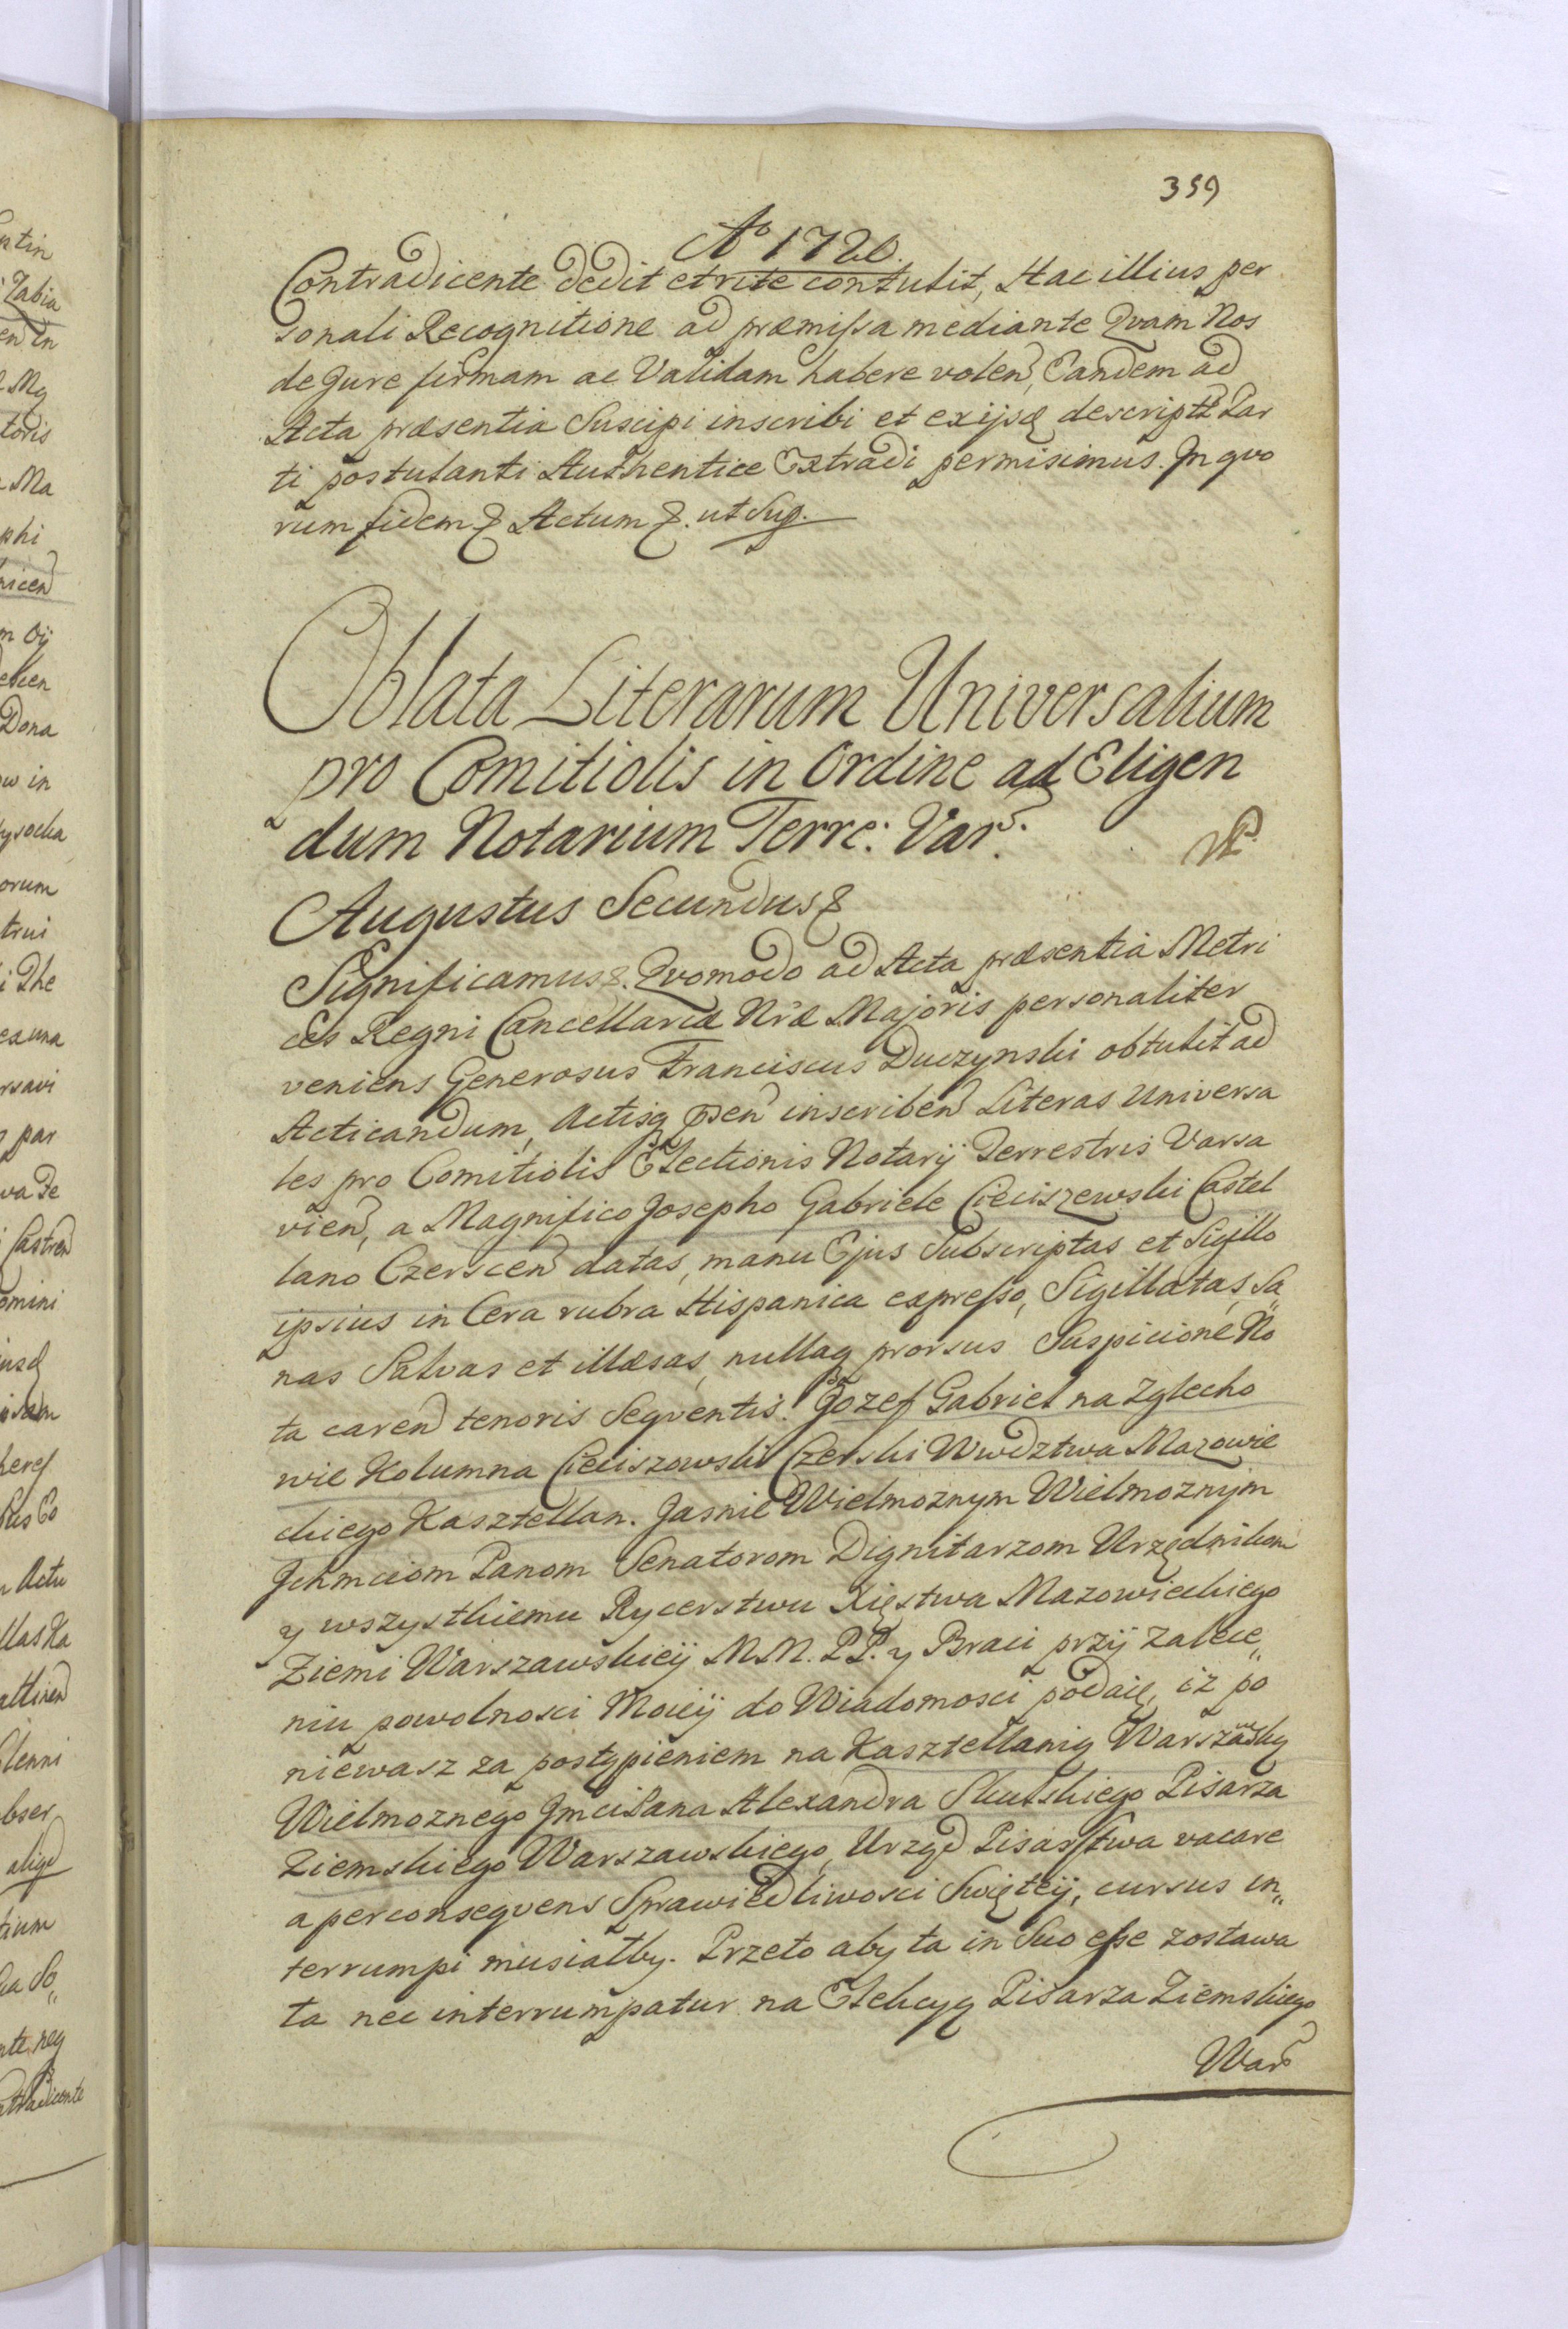 359
Aº 1720.
Contradicente dedit et rite contulit, Hac illius per
sonali Recognitione ad præmissa mediante Qvam Nos
de Jure firmam ac Validam habere volen, Eandem ad
Acta præsentia Suscipi inscribi et exijsq descriptt Par
ti postulanti Authentice Extradi permisimus. In qvo
rum fidem & Actum &. ut Sup.
Oblata Literarum Universalium
pro Comitiolis in Ordine ad Eligen
dum Notarium Terre: Var:
Augustus Secundus &
Significamus &. Qvomodo ad Acta præsentia Metri
ces Regni Cancellariæ Nræ Majoris personaliter
veniens Generosus Franciscus Duczynski obtulit ad
Acticandum, Actisq psen inscriben Literas Universa
les pro Comitiolis Electionis Notarij Terrestris Varsa
vien, a Magnifico Josepho Gabriele Cieciszewski Castel
lano Czerscen datas, manu Ejus Subscriptas et Sigillo
ipsius in Cera rubra Hispanica expresso, Sigillatas, Sa„
nas Salvas et illæsas, nullaq prorsus Suspicione No
ta caren tenoris Seqventis. Jozef Gabriel na Zglecho
wie Kolumna Cieciszowski Czerski Wwdztwa Mazowie
ckiego Kasztellan. Jasnie Wielmoznym Wielmoznym
Jchmciom Panom Senatorom Dignitarzom Urzędnikom
y wszystkiemu Rycerstwu Xięstwa Mazowieckiego
Ziemi Warszawskieÿ M.M. P.P. y Braci przÿ zalece„
niu powolnosci Moieÿ do Wiadomosci podaię, iż po
niewasz za postąpieniem na Kasztellanią Warszawską
Wielmoznego Jmci Pana Alexandra Skulskiego Pisarza
Ziemskiego Warszawskiego, Urząd Pisarstwa vacare
a perconseqvens Sprawiedliwosci Swięteÿ, cursus in„
terrumpi musiałby. Przeto aby ta in Suo esse zostawa
ła nec interrumpatur na Elekcyą Pisarza Ziemskiego
War